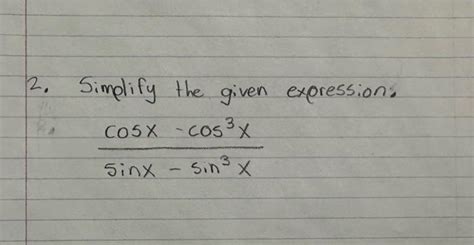 2. Simplify the given expression.
cosx - cos³x
sinx - sin³x